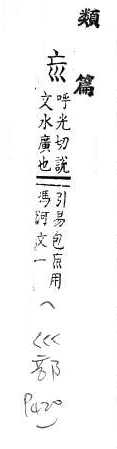 類篇
巟
呼光切說
文水廣也
引易包巟用
馮河文一
(巛部
P420)